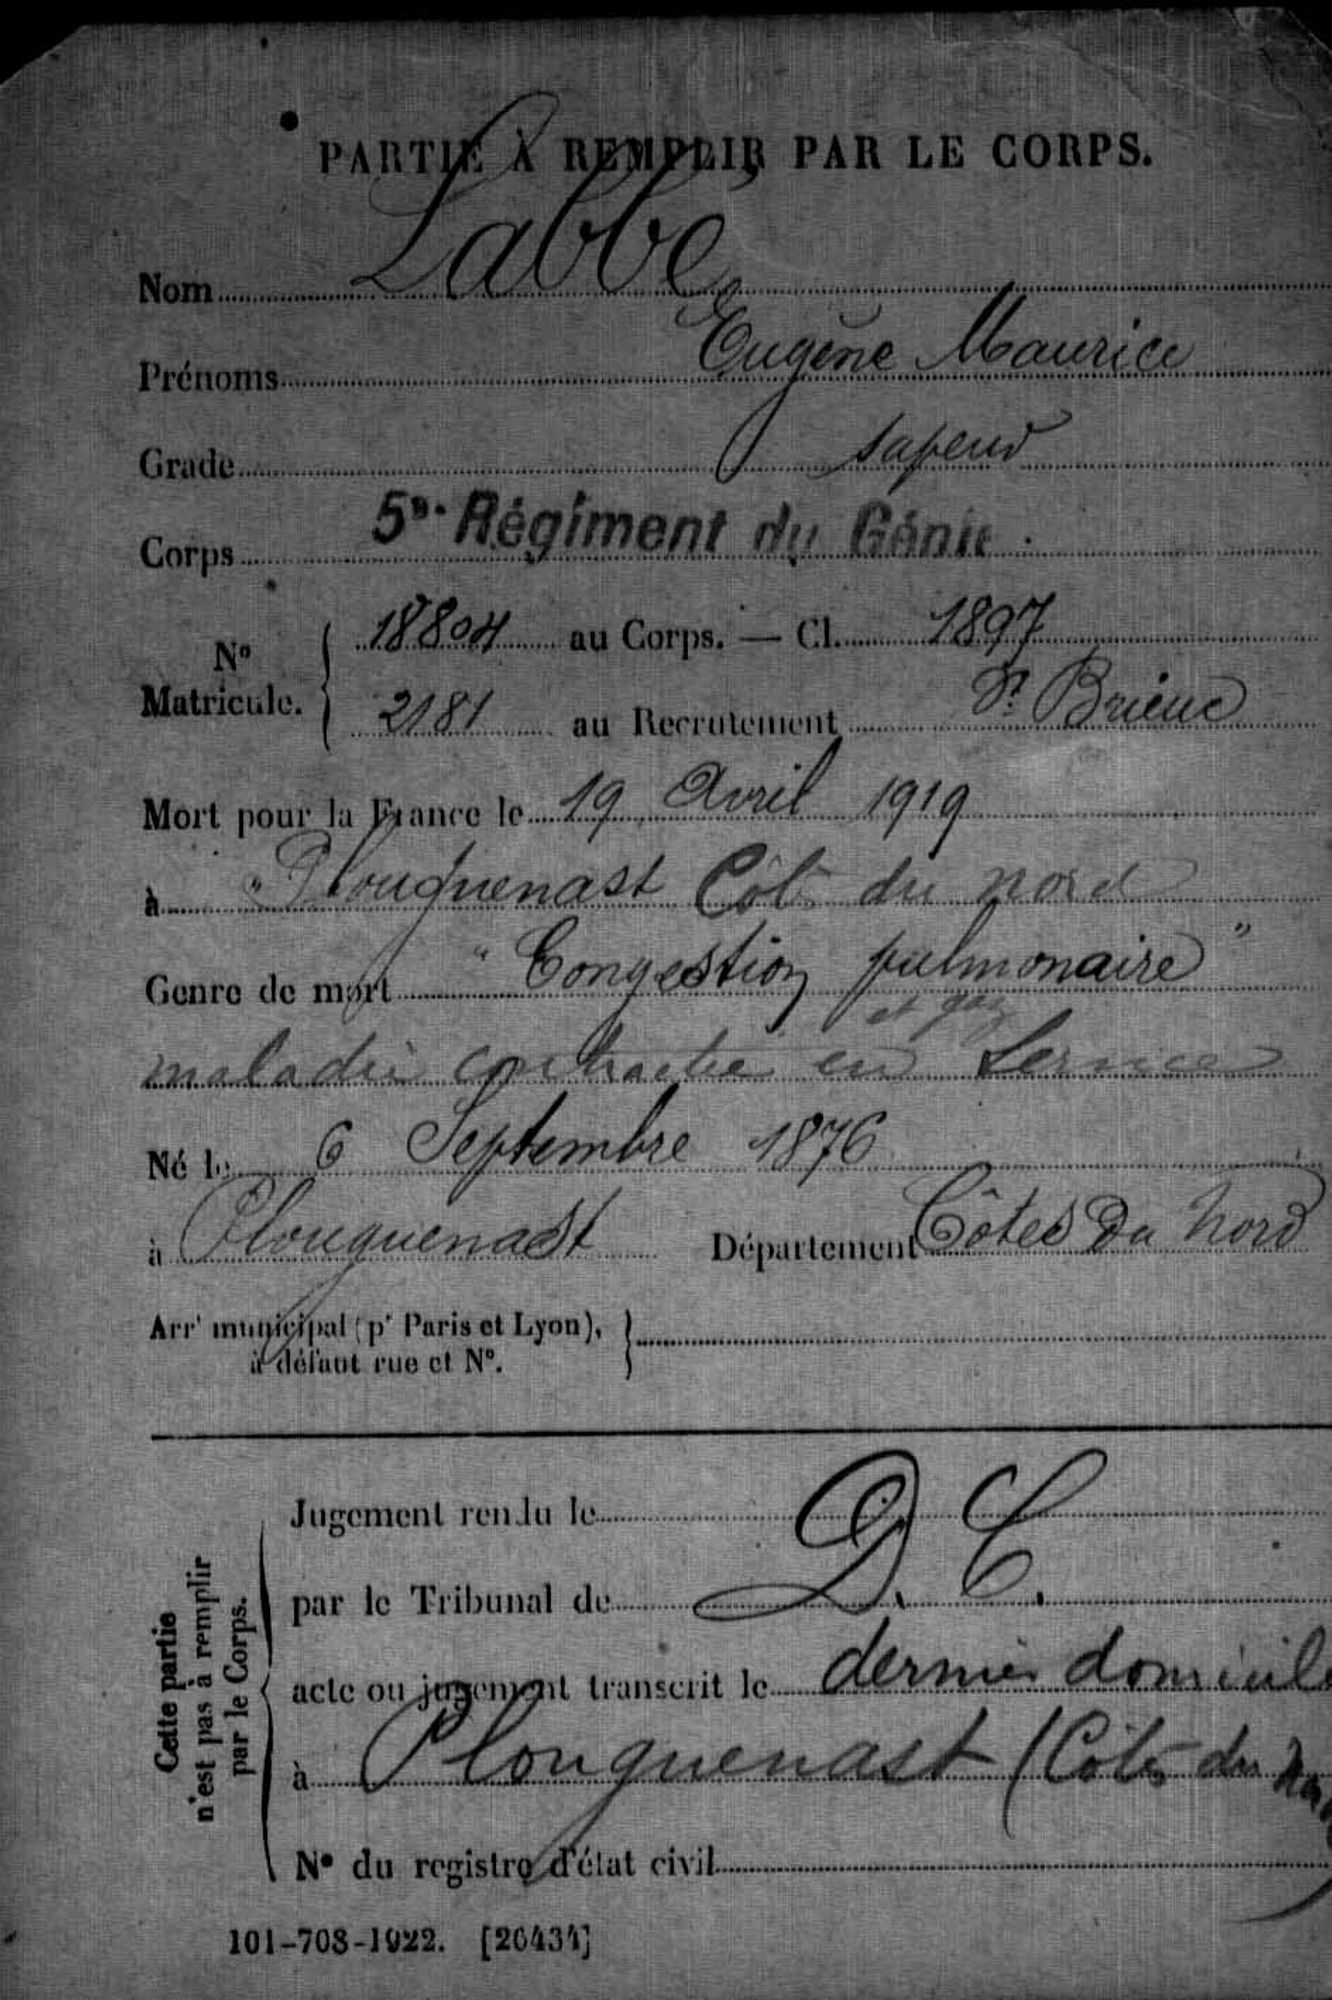 PARTIE À REMPLIR PAR LE CORPS.
Nom Labbé
Prénoms Eugène Maurice
Grade sapeur
Corps 5e Régiment du Génie
No Matricule. 18804 au Corps. — Cl. 1897
2181 au Recrutement St Brieuc
Mort pour la France le 19 Avril 1919
à Plouguenast Côtes du Nord
Genre de mort "Congestion pulmonaire"
et gaz
maladie contractée en service
Né le 6 Septembre 1876
à Plouguenast Département Côtes du Nord
Arrt municipal (pr Paris et Lyon),
à défaut rue et No.
Cette partie
n'est pas à remplir
par le Corps.
Jugement rendu le
par le Tribunal de D. C.
acte ou jugement transcrit le dernier domicile
à Plouguenast (Côtes du Nord
No du registre d'état civil
101-708-1922. [26434]